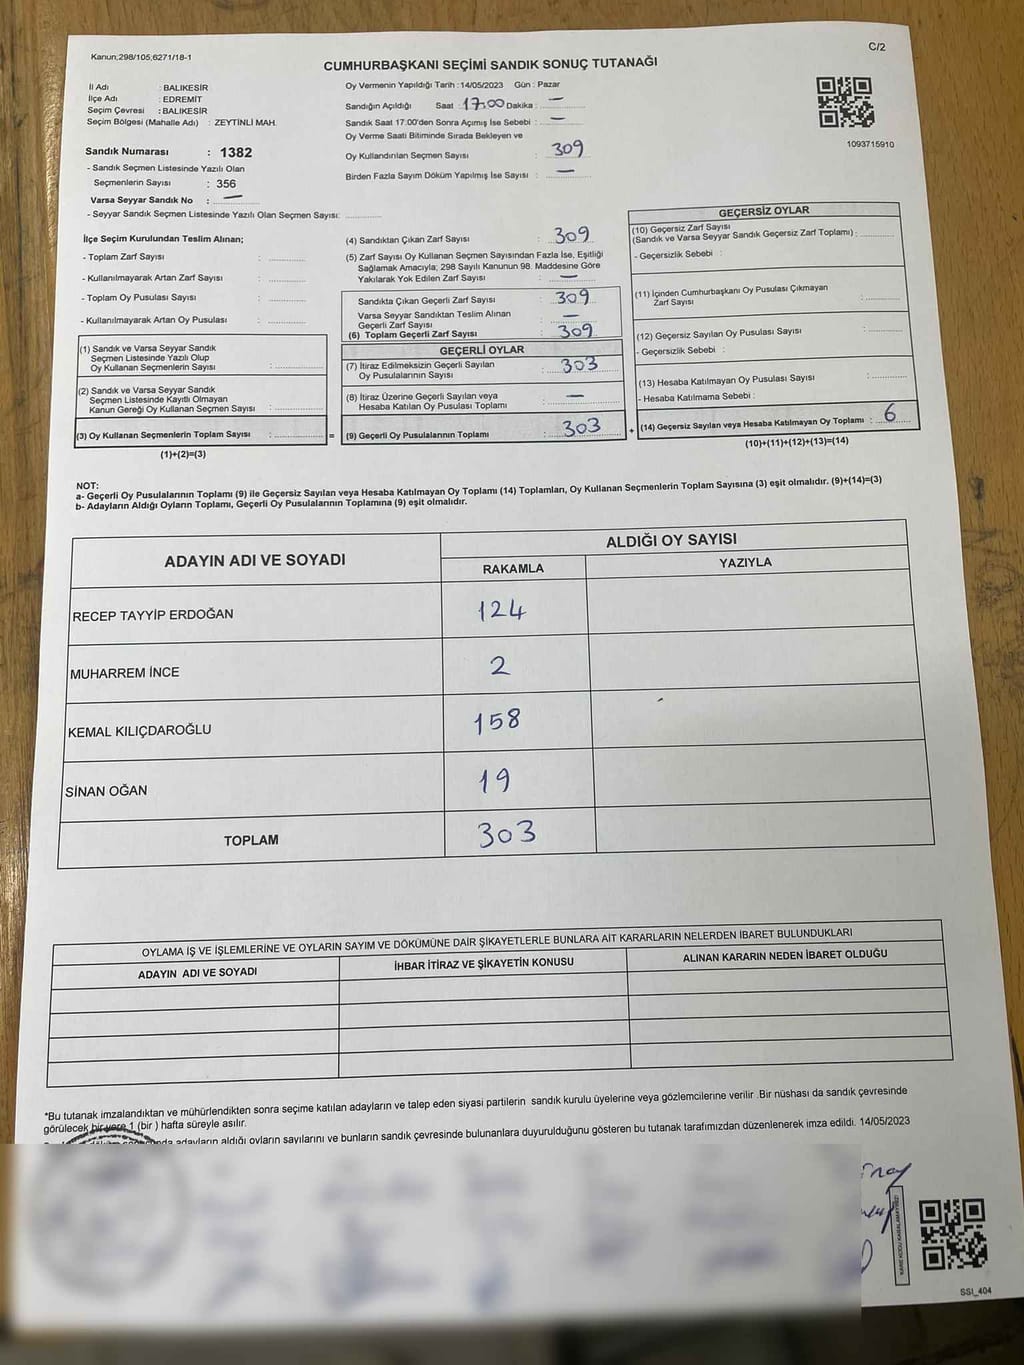 Kanun;298/105;6271/18-1
C/2
CUMHURBAŞKANI SEÇİMİ SANDIK SONUÇ TUTANAĞI
İl Adı : BALIKESİR
İlçe Adı : EDREMİT
Seçim Çevresi : BALIKESİR
Seçim Bölgesi (Mahalle Adı) : ZEYTİNLİ MAH.
Sandık Numarası : 1382
- Sandık Seçmen Listesinde Yazılı Olan
Seçmenlerin Sayısı : 356
Varsa Seyyar Sandık No : —
- Seyyar Sandık Seçmen Listesinde Yazılı Olan Seçmen Sayısı: ............
Oy Vermenin Yapıldığı Tarih :14/05/2023 Gün : Pazar
Sandığın Açıldığı Saat : 17:00 Dakika : —
Sandık Saat 17:00'den Sonra Açımış İse Sebebi : —
Oy Verme Saati Bitiminde Sırada Bekleyen ve
Oy Kullandırılan Seçmen Sayısı : 309
Birden Fazla Sayım Döküm Yapılmış İse Sayısı : —
1093715910
İlçe Seçim Kurulundan Teslim Alınan;
- Toplam Zarf Sayısı : ............
- Kullanılmayarak Artan Zarf Sayısı : ............
- Toplam Oy Pusulası Sayısı : ............
- Kullanılmayarak Artan Oy Pusulası : ............
(1) Sandık ve Varsa Seyyar Sandık
Seçmen Listesinde Yazılı Olup
Oy Kullanan Seçmenlerin Sayısı : ............
(2) Sandık ve Varsa Seyyar Sandık
Seçmen Listesinde Kayıtlı Olmayan
Kanun Gereği Oy Kullanan Seçmen Sayısı : ............
(3) Oy Kullanan Seçmenlerin Toplam Sayısı : ............ =
(1)+(2)=(3)
(4) Sandıktan Çıkan Zarf Sayısı : 309
(5) Zarf Sayısı Oy Kullanan Seçmen Sayısından Fazla İse, Eşitliği
Sağlamak Amacıyla; 298 Sayılı Kanunun 98. Maddesine Göre
Yakılarak Yok Edilen Zarf Sayısı : —
Sandıkta Çıkan Geçerli Zarf Sayısı : 309
Varsa Seyyar Sandıktan Teslim Alınan
Geçerli Zarf Sayısı : —
(6) Toplam Geçerli Zarf Sayısı : 309
GEÇERLİ OYLAR
(7) İtiraz Edilmeksizin Geçerli Sayılan
Oy Pusulalarının Sayısı : 303
(8) İtiraz Üzerine Geçerli Sayılan veya
Hesaba Katılan Oy Pusulası Toplamı : —
(9) Geçerli Oy Pusulalarının Toplamı : 303 +
GEÇERSİZ OYLAR
(10) Geçersiz Zarf Sayısı
(Sandık ve Varsa Seyyar Sandık Geçersiz Zarf Toplamı) : ............
- Geçersizlik Sebebi :
(11) İçinden Cumhurbaşkanı Oy Pusulası Çıkmayan
Zarf Sayısı : ............
(12) Geçersiz Sayılan Oy Pusulası Sayısı : ............
- Geçersizlik Sebebi :
(13) Hesaba Katılmayan Oy Pusulası Sayısı : ............
- Hesaba Katılmama Sebebi :
(14) Geçersiz Sayılan veya Hesaba Katılmayan Oy Toplamı : 6
(10)+(11)+(12)+(13)=(14)
NOT:
a- Geçerli Oy Pusulalarının Toplamı (9) ile Geçersiz Sayılan veya Hesaba Katılmayan Oy Toplamı (14) Toplamları, Oy Kullanan Seçmenlerin Toplam Sayısına (3) eşit olmalıdır. (9)+(14)=(3)
b- Adayların Aldığı Oyların Toplamı, Geçerli Oy Pusulalarının Toplamına (9) eşit olmalıdır.
ADAYIN ADI VE SOYADI
ALDIĞI OY SAYISI
RAKAMLA YAZIYLA
RECEP TAYYİP ERDOĞAN 124
MUHARREM İNCE 2
KEMAL KILIÇDAROĞLU 158
SİNAN OĞAN 19
TOPLAM 303
OYLAMA İŞ VE İŞLEMLERİNE VE OYLARIN SAYIM VE DÖKÜMÜNE DAİR ŞİKAYETLERLE BUNLARA AİT KARARLARIN NELERDEN İBARET BULUNDUKLARI
ADAYIN ADI VE SOYADI İHBAR İTİRAZ VE ŞİKAYETİN KONUSU ALINAN KARARIN NEDEN İBARET OLDUĞU
*Bu tutanak imzalandıktan ve mühürlendikten sonra seçime katılan adayların ve talep eden siyasi partilerin sandık kurulu üyelerine veya gözlemcilerine verilir .Bir nüshası da sandık çevresinde
görülecek bir yere 1 (bir ) hafta süreyle asılır.
adayların aldığı oyların sayılarını ve bunların sandık çevresinde bulunanlara duyurulduğunu gösteren bu tutanak tarafımızdan düzenlenerek imza edildi. 14/05/2023
SSI_404